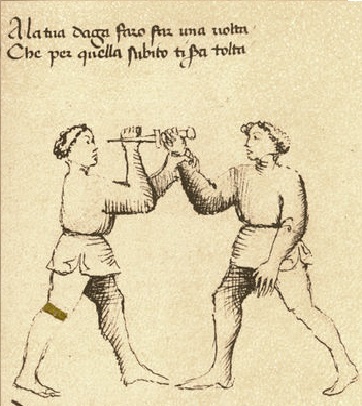 A la tua daga faro far una volta
Che per quella subito ti sia tolta